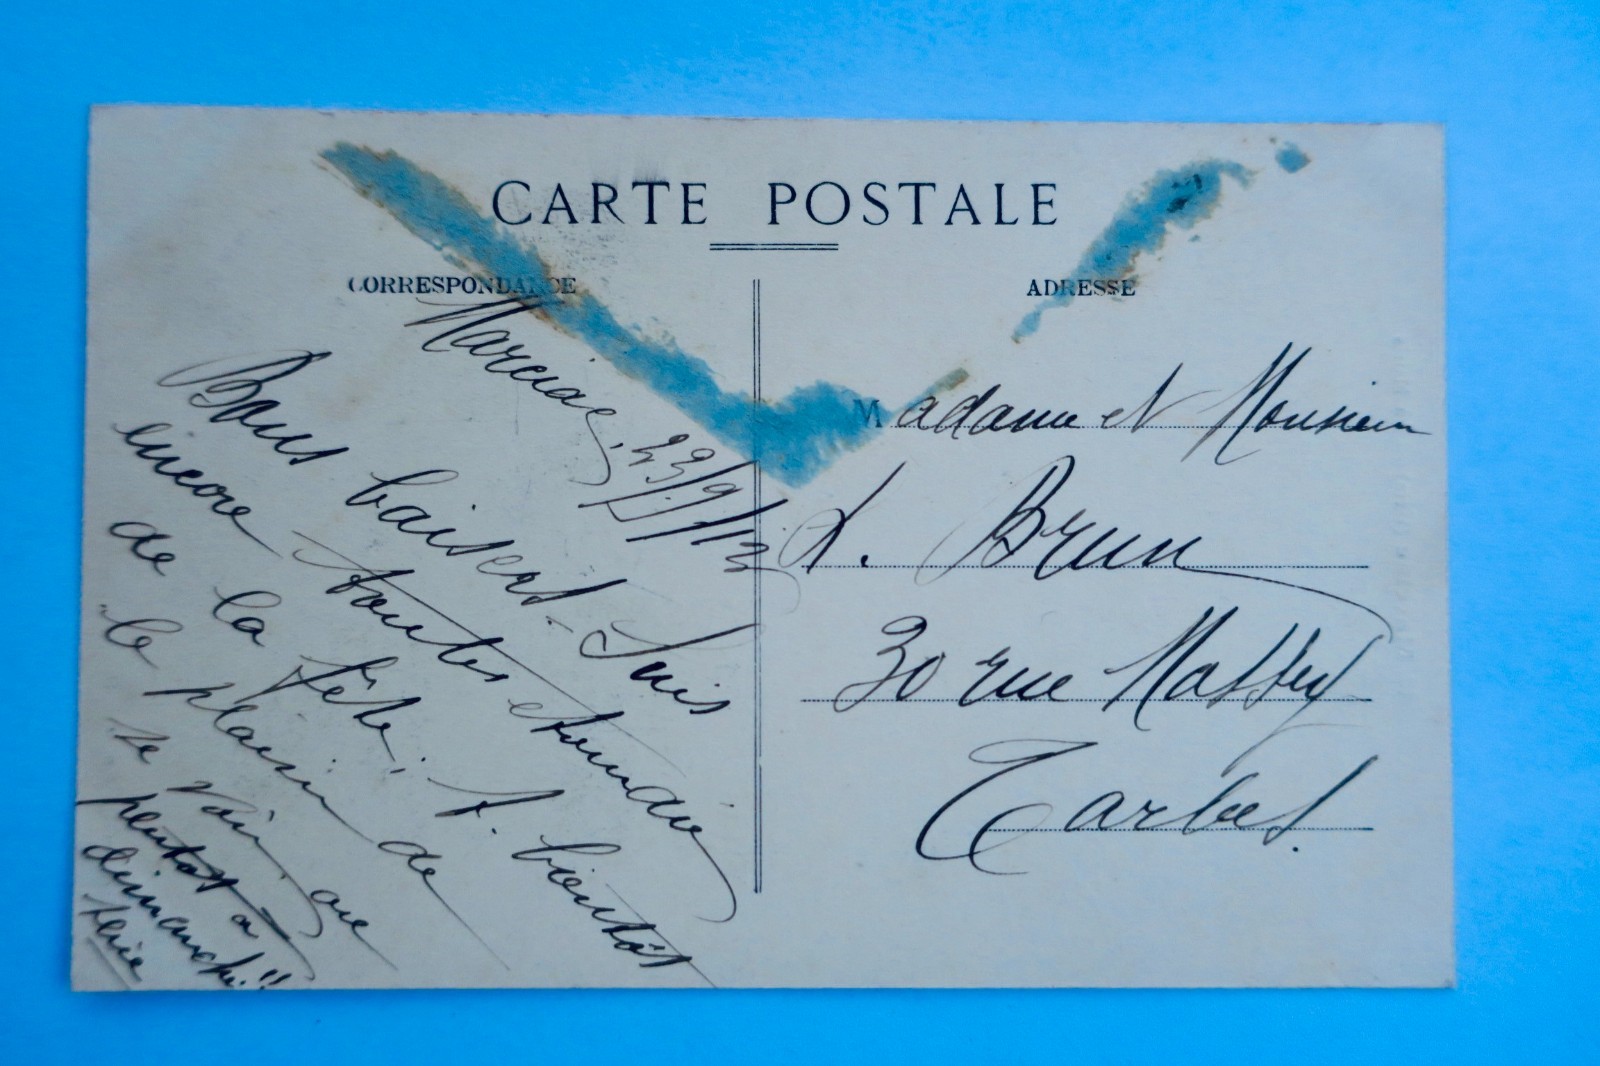 CARTE POSTALE
CORRESPONDANCE
ADRESSE
Marciac, 23/9/13
Bons baisers. Suis
encore toute étourdie
de la fête; A. bientôt
le plaisir de
te voir, ou
plutôt à
dimanche!!
Madame et Monsieur
Brun
30 rue Massey
Tarbes.